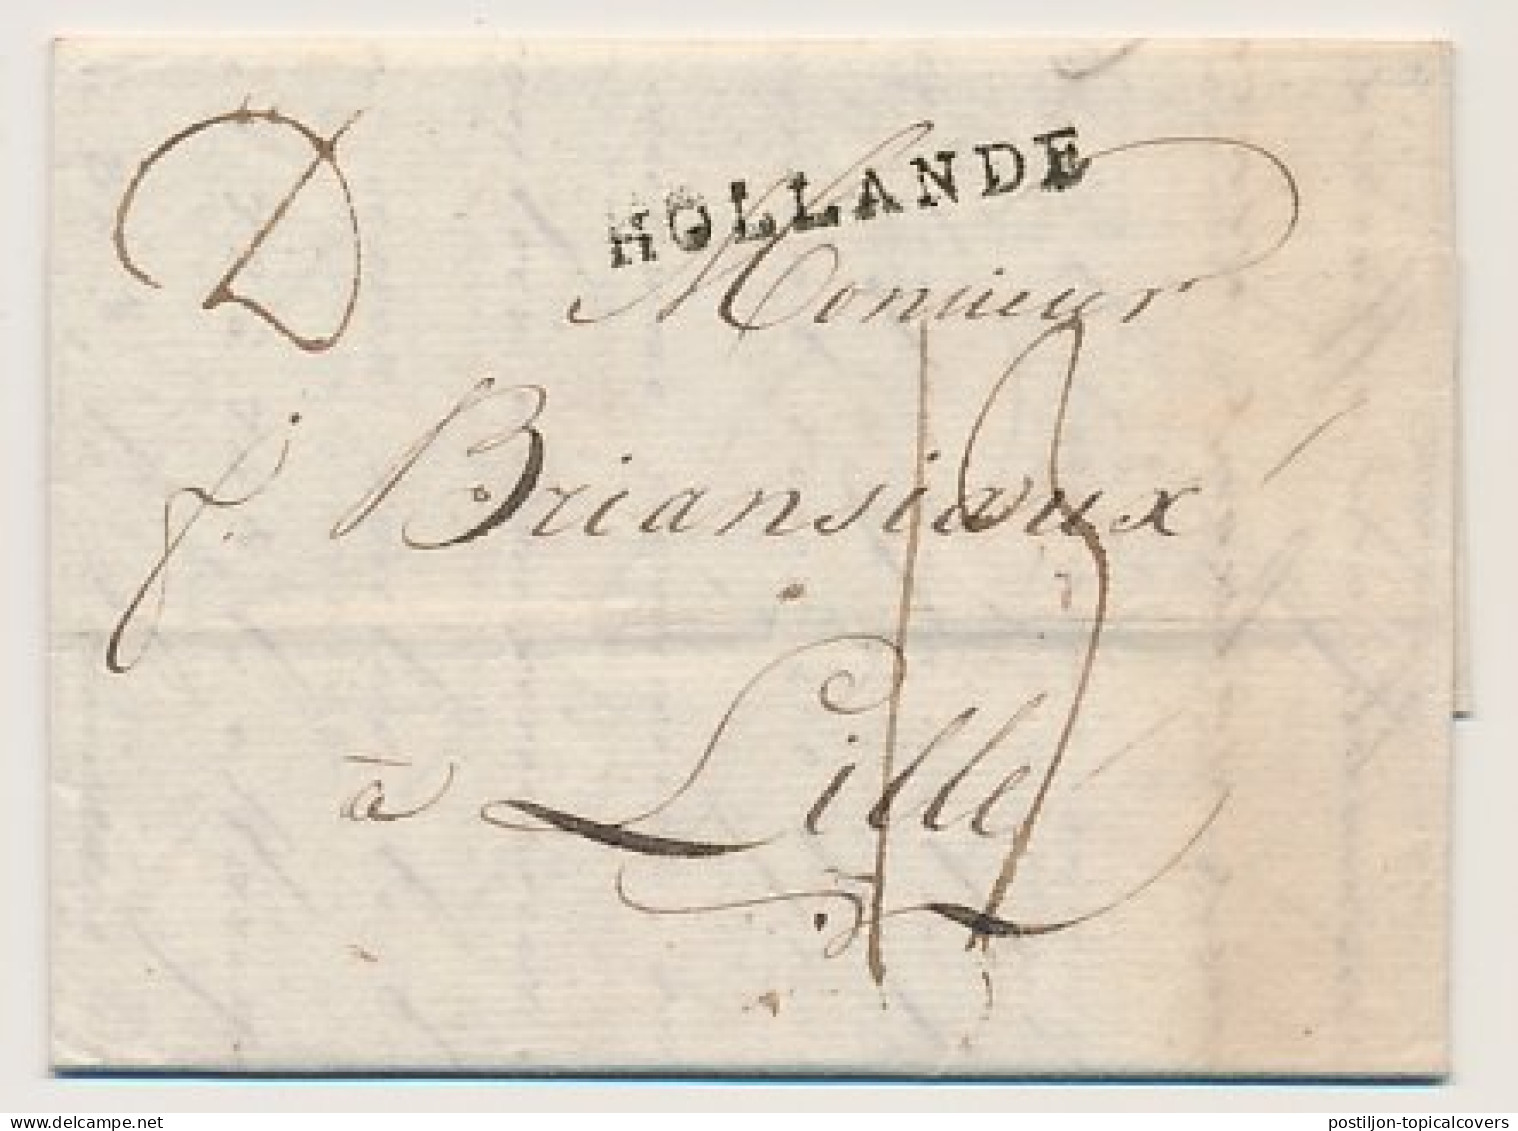 HOLLANDE
Monsieur
Briansiaux
à Lille
delcampe.net
postiljon-topicalcovers